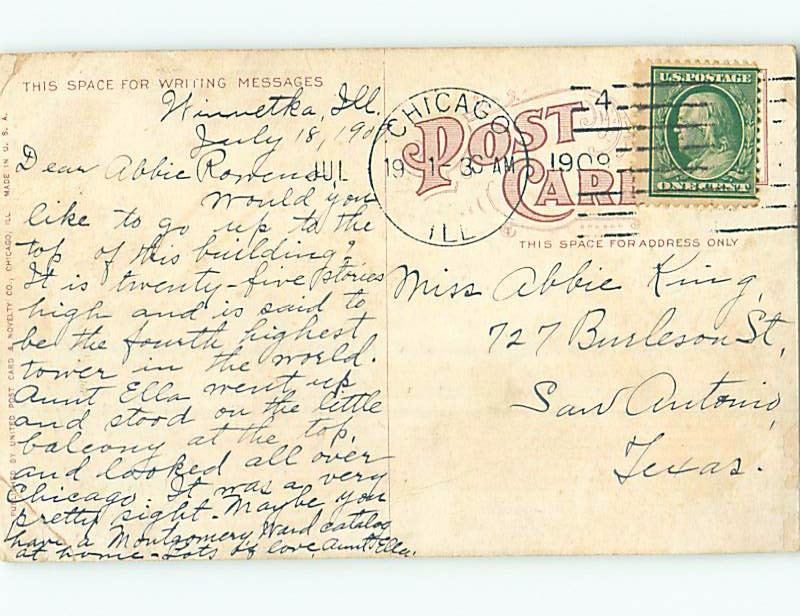 THIS SPACE FOR WRITING MESSAGES
Winnetka, Ill.
July 18, 190
Dear Abbie Rowena,
Would you
like to go up to the
top of this building?
It is twenty-five stories
high and is said to
be the fourth highest
tower in the world.
Aunt Ella went up
and stood on the little
balcony at the top,
and looked all over
Chicago. It was a very
pretty sight. Maybe you
have a Montgomery Ward catalog
at home - Lots of love, Aunt Ella.
PUBLISHED BY UNITED POST CARD & NOVELTY CO., CHICAGO, ILL. MADE IN U.S.A.
POST
CARD
CHICAGO
JUL 19 1 30 AM 1909
ILL
4
U.S. POSTAGE
ONE CENT
THIS SPACE FOR ADDRESS ONLY
Miss Abbie King,
727 Burleson St,
San Antonio,
Texas.